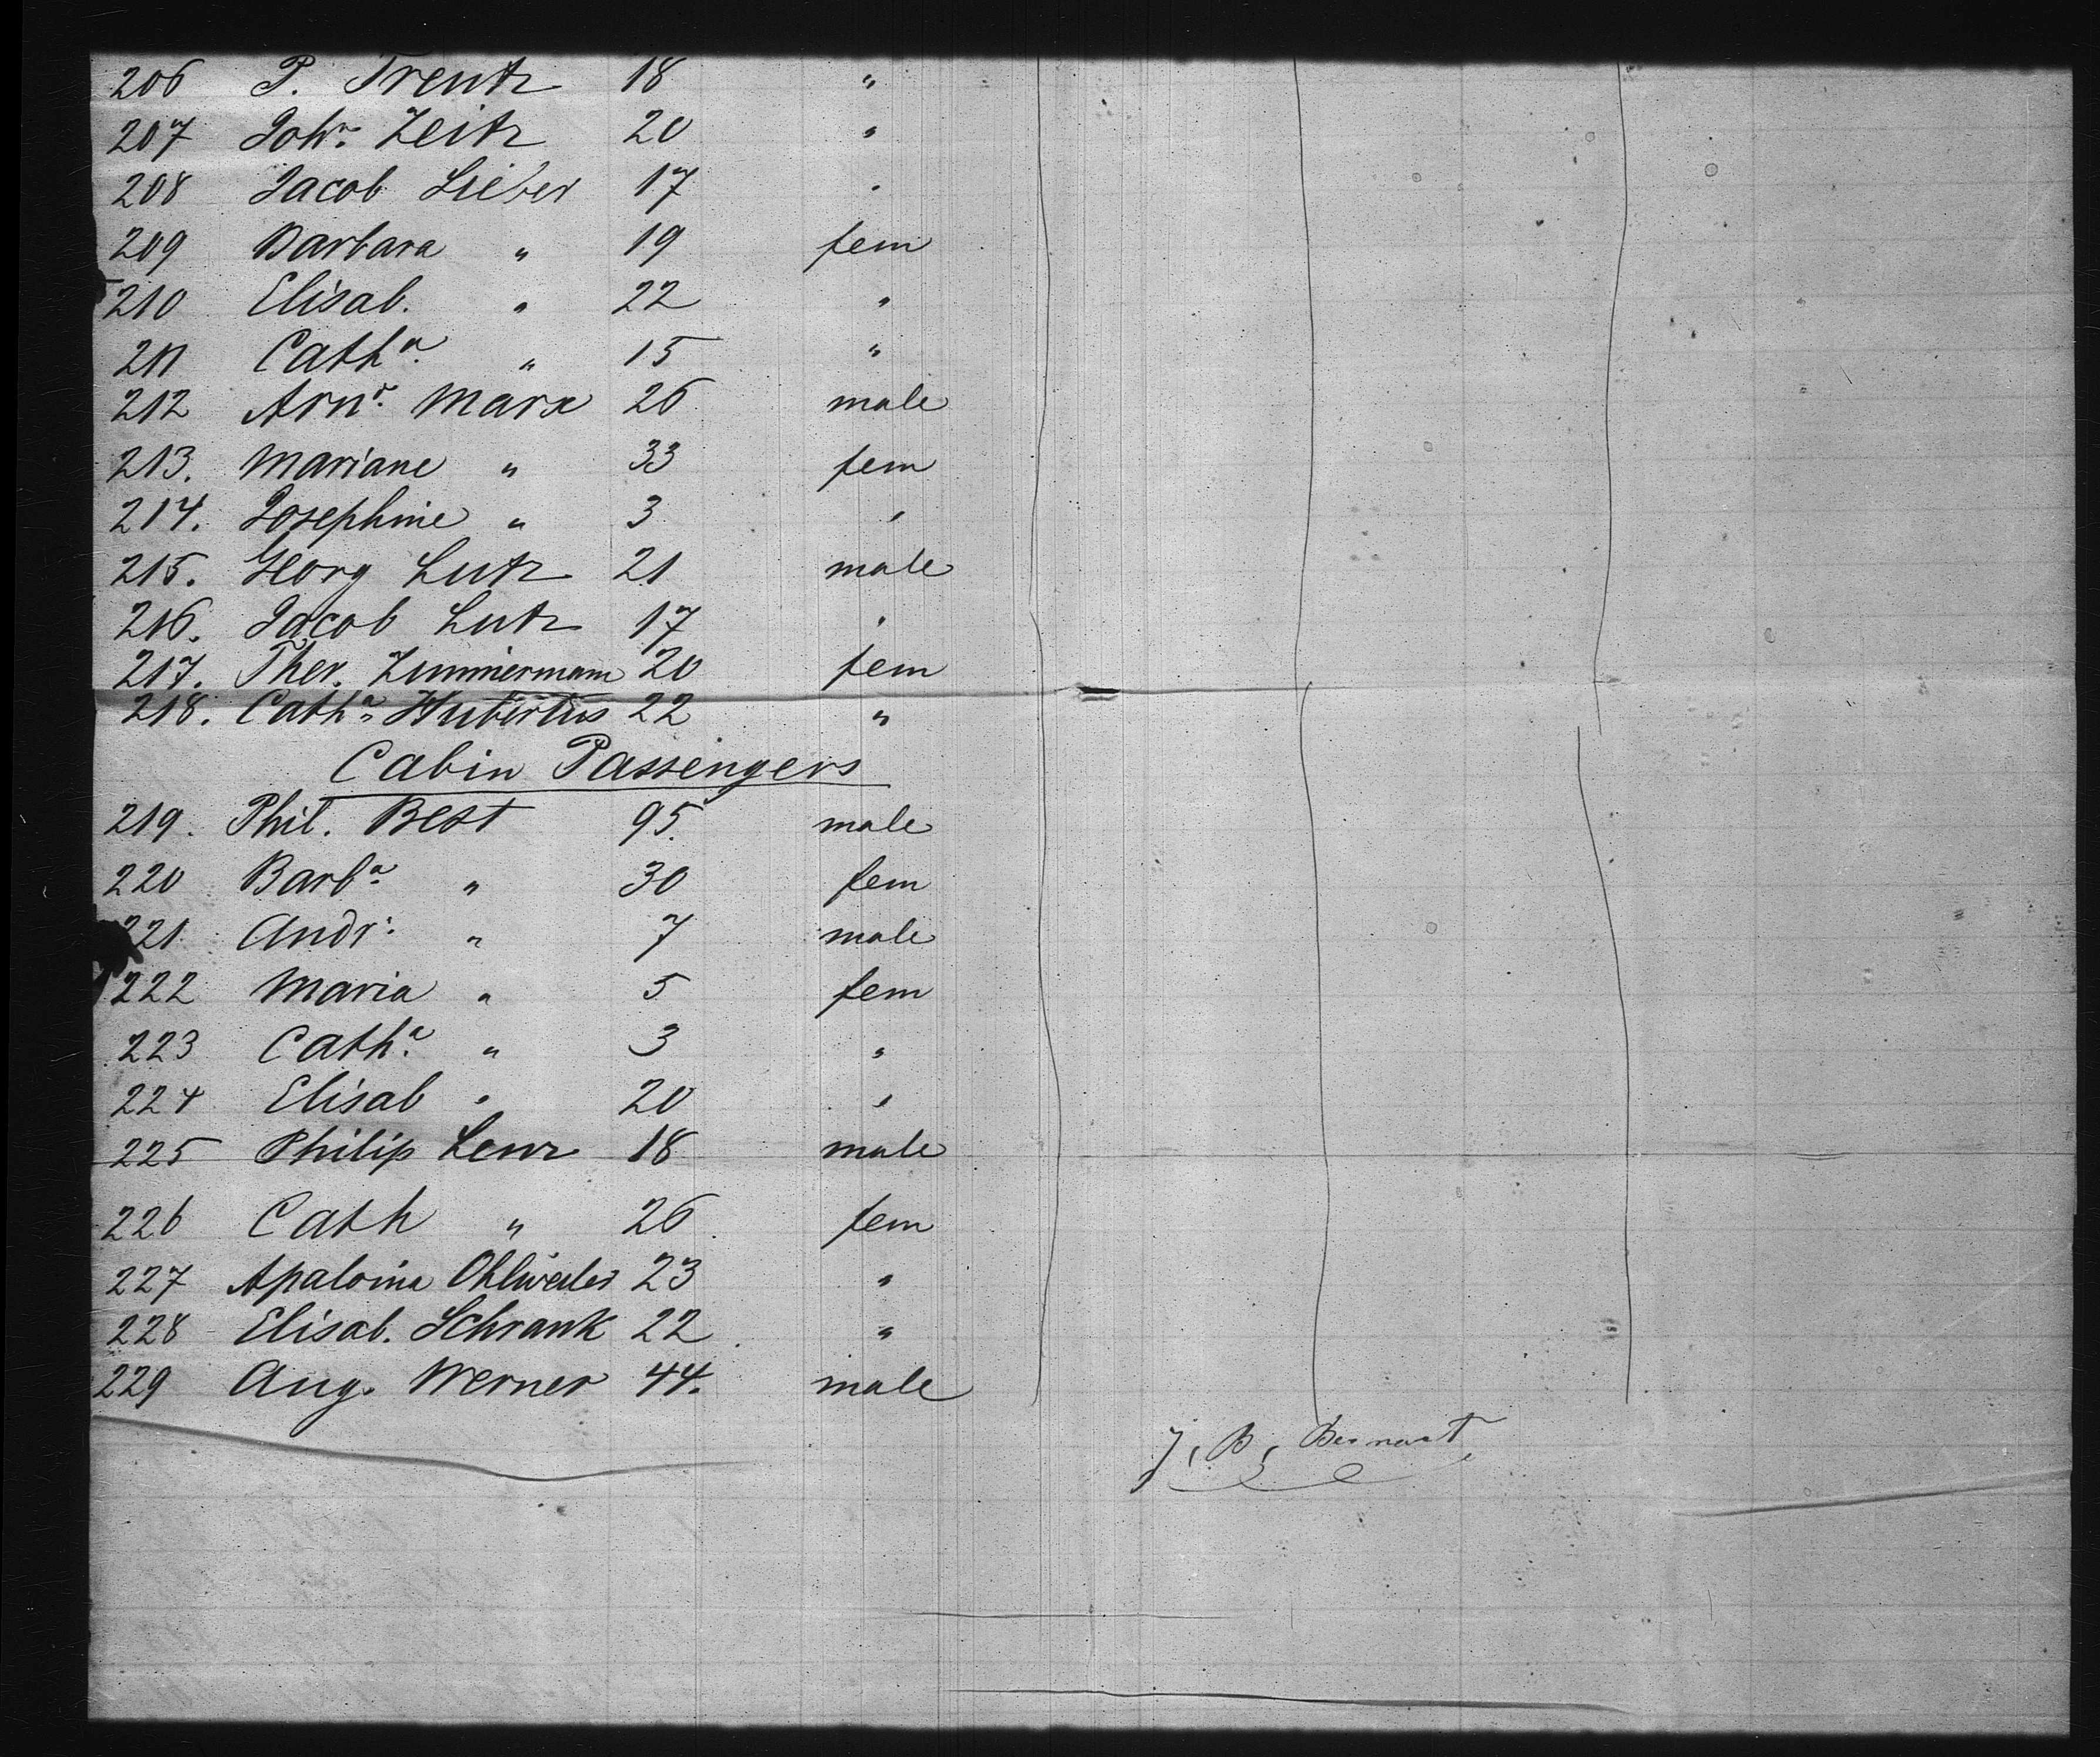 206 P. Trentz 18 "
207 Johⁿ. Zeitz 20 "
208 Jacob Lieber 17 "
209 Barbara " 19 fem
210 Elisab. " 22 "
211 Cathᵃ. " 15 "
212 Arnᵈ. Marx 26 male
213. Mariane " 33 fem
214. Josephine " 3 "
215. Georg Lutz 21 male
216. Jacob Lutz 17 "
217. Ther. Zimmermann 20 fem
218. Cathᵃ. Hubertus 22 "
Cabin Passengers
219. Phil. Best 95. male
220 Barbᵃ. " 30 fem
221 Andr. " 7 male
222 Maria " 5 fem
223 Cathᵃ. " 3 "
224 Elisab " 20 "
225 Philip Lenz 18 male
226 Cath " 26 fem
227 Apaloina Ohlweiler 23 "
228 Elisab. Schrank 22 "
229 Aug. Werner 44. male
J. B.